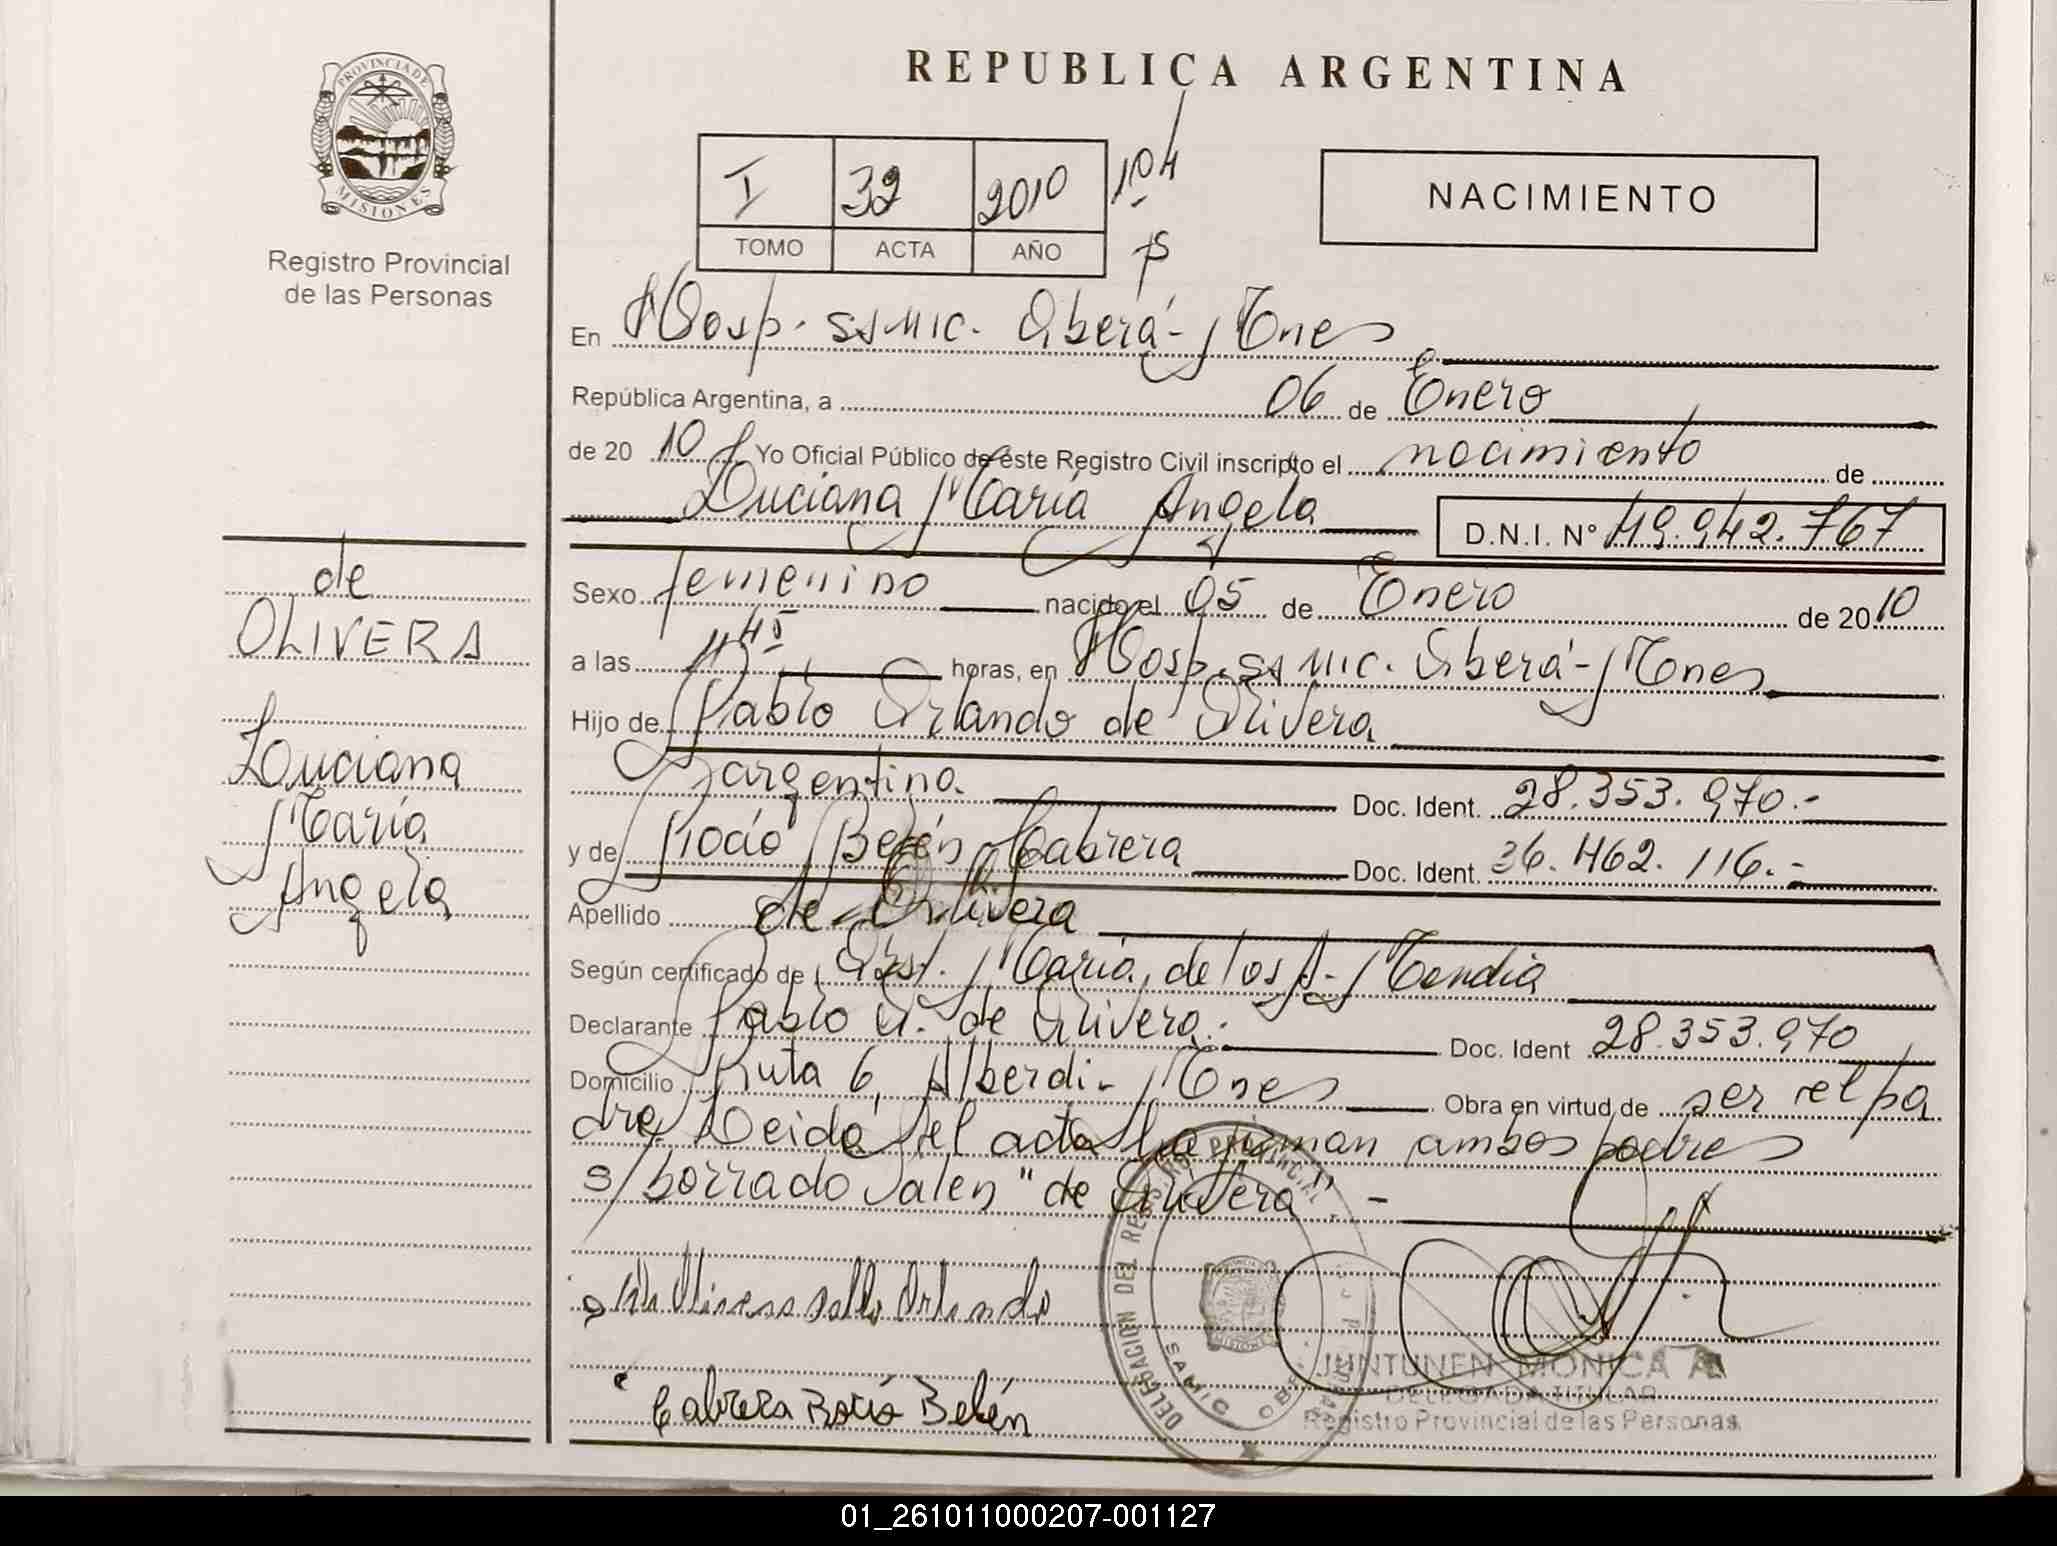 PROVINCIA DE
MISIONES
Registro Provincial
de las Personas
de
OLIVERA
Luciana
María
Angela
REPUBLICA ARGENTINA
I 32 2010 104
TOMO ACTA AÑO
NACIMIENTO
En Hosp. SSMIC. Oberá - Mnes
República Argentina, a 06 de Enero
de 20 10 Yo Oficial Público de éste Registro Civil inscripto el nacimiento de
Luciana María Angela D.N.I. Nº 49.942.767
Sexo femenino nacido el 05 de Enero de 20 10
a las 11 45 horas, en Hosp. SSMIC. Oberá - Mnes
Hijo de Pablo Orlando de Olivera
argentino. Doc. Ident. 28.353.970.-
y de Rocío Belén Cabrera Doc. Ident. 36.462.116.-
Apellido de Olivera
Según certificado de Obst. María de los A. Mendia
Declarante Pablo O. de Olivera. Doc. Ident 28.353.970
Domicilio Ruta 6, Alberdi - Mnes Obra en virtud de ser el pa
dre. Leida el acta la firman ambos padres
s/borrado valen "de Olivera" -
De Olivera Pablo Orlando
Cabrera Rocío Belén
DELEGACION DEL REGISTRO PROVINCIAL
JUNTUNEN MONICA A
DELEGADA TITULAR
Registro Provincial de las Personas
01_261011000207-001127